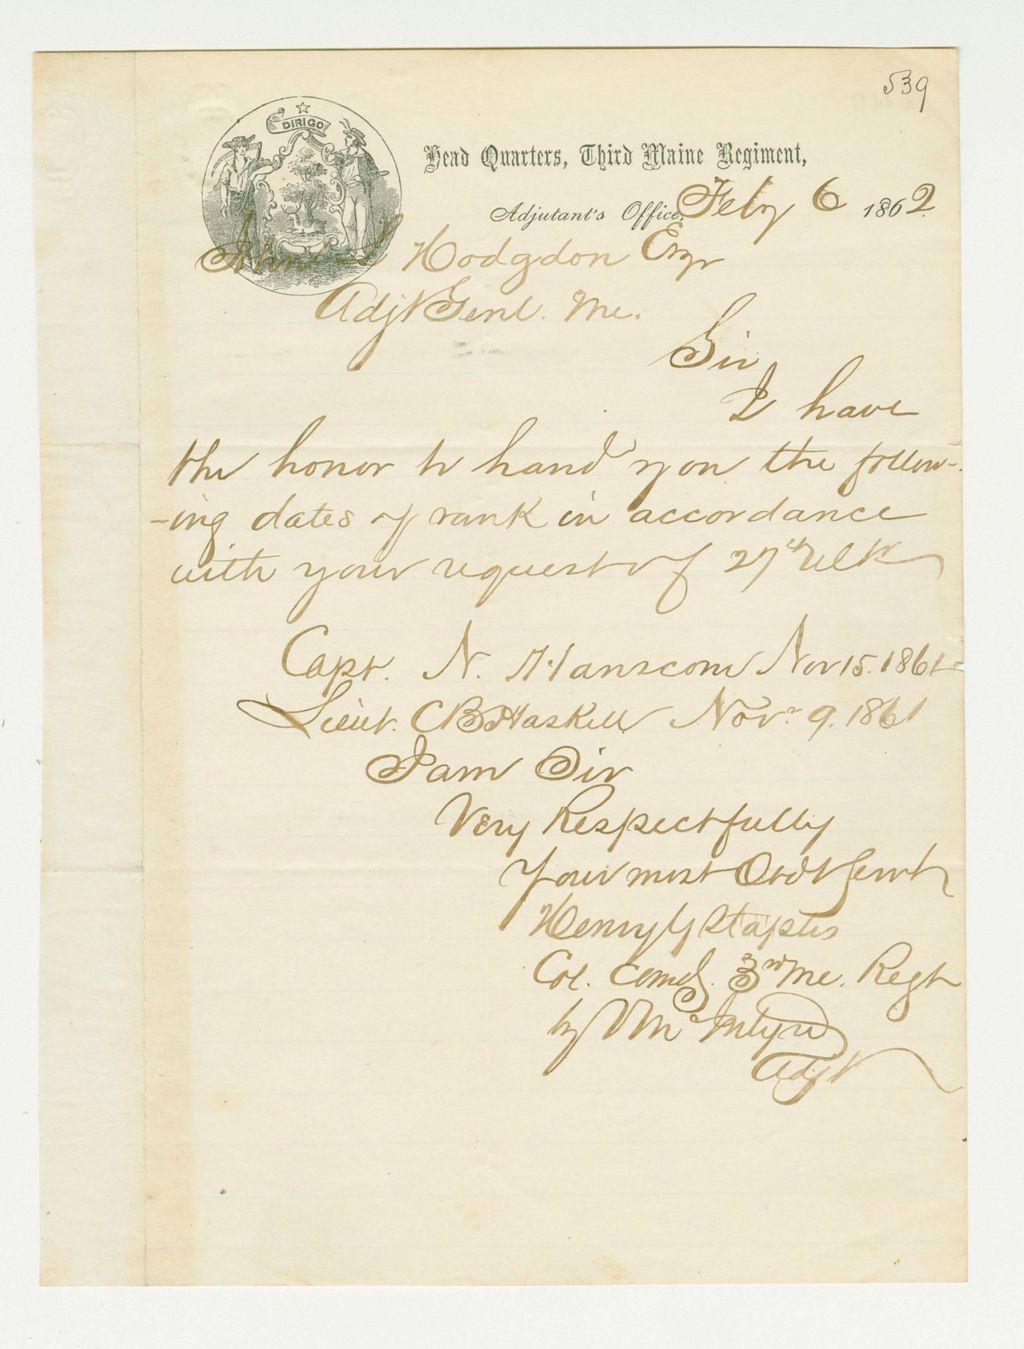 539
DIRIGO
Head Quarters, Third Maine Regiment,
Adjutant's Office, Feby 6 1862.
John L Hodgdon Esqr
Adjt Genl. Me.
Sir
I have
the honor to hand you the follow-
-ing dates of rank in accordance
with your request of 27th Ult
Capt. N. Hanscom Nov 15. 1861
Lieut. C B Haskell Novr 9. 1861
I am Sir
Very Respectfully
Your most Obdt Servt
Henry G Staples
Col. Comdg. 3rd Me. Regt
by McIntyre
Adjt